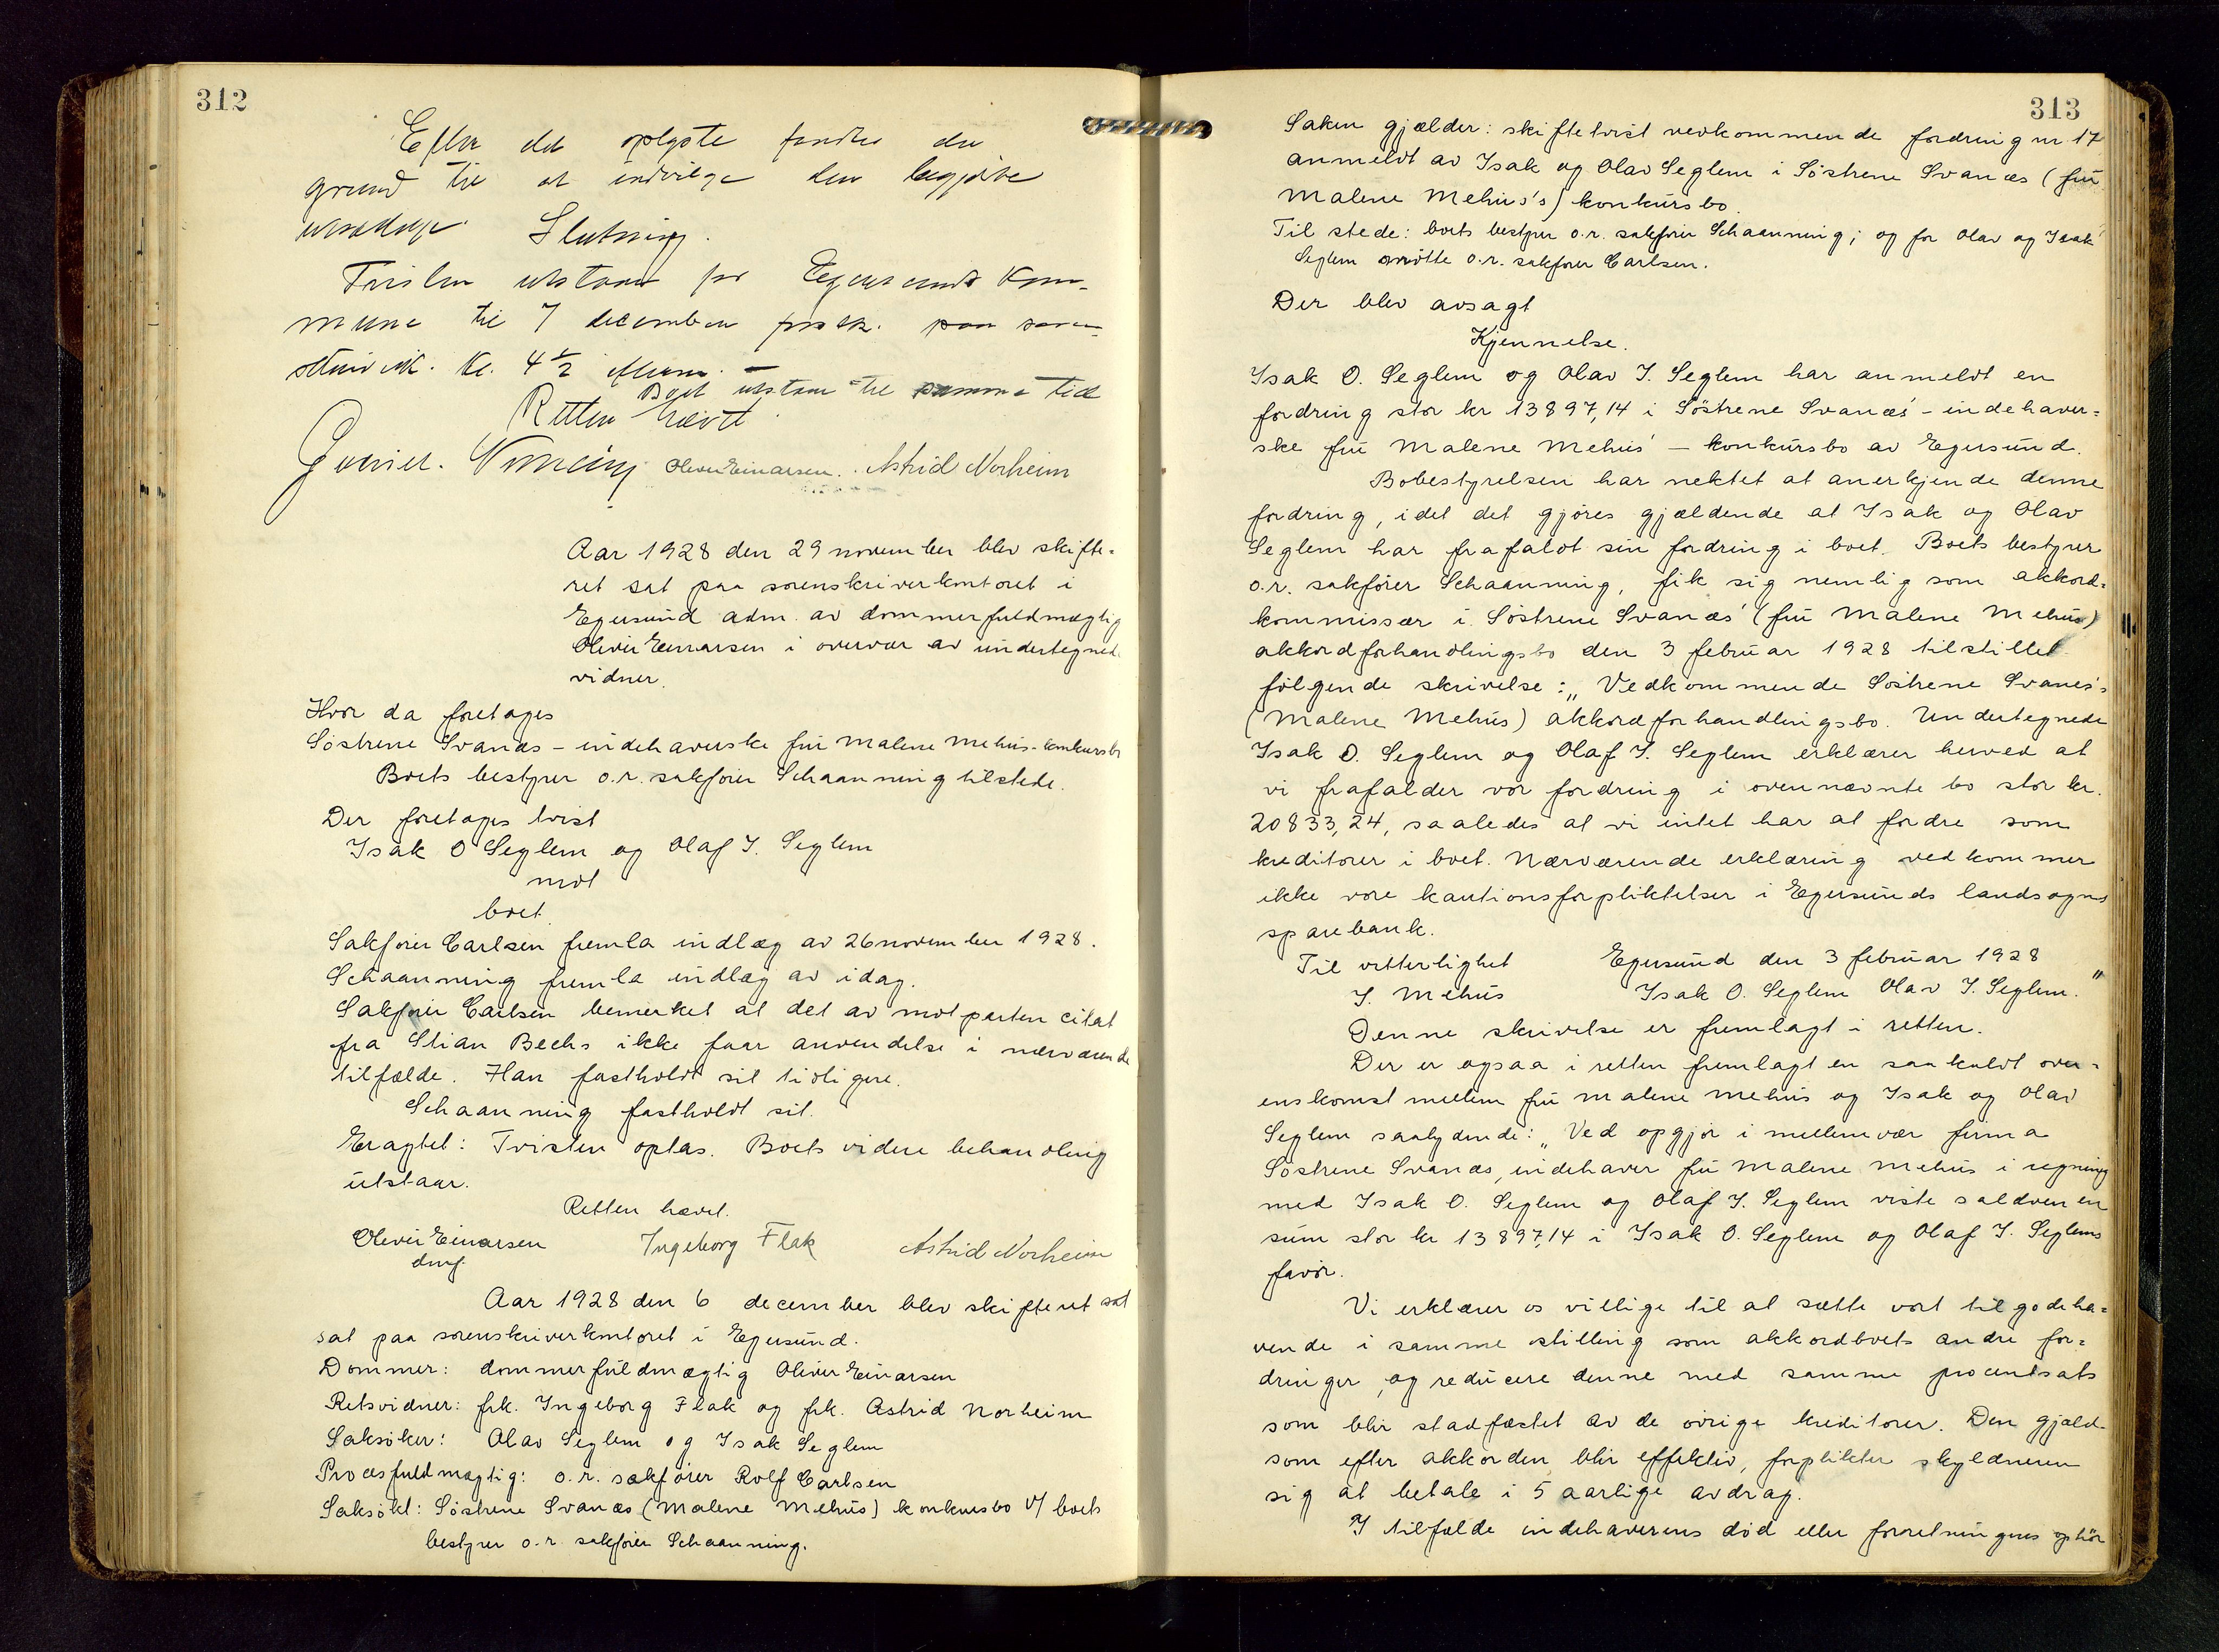 312
Efter det oplyste findes der
grund til at indvilge den begjærte
utsættelse. Slutning.
Fristen utstaar for Egersunds Kom-
mune til 7 december førstk. paa soren-
Kl. 4 1/2 efterm.
Boet utstaar til samme tid
Retten hævet
Oliver Einarsen. Astrid Norheim
Aar 1928 den 29 november blev skifte-
ret sat paa sorenskriverkontoret i
Egersund adm. av dommerfuldmægtig
Oliver Einarsen i overvær av undertegnede
vidner.
Hvor da foretages
Söstrene Svanæs - indehaverske frú Malene Mehús - konkursbo
Boets bestyrer o.r. sakförer Schaanning tilstede.
Der foretages tvist
Isak O Seglem og Olaf I. Seglem
mot
boet.
Sakförer Carlsen fremla indlæg av 26 november 1928.
Schaanning fremla indlæg av idag.
Sakförer Carlsen bemerket at det av motparten citat
fra Stian Bechs ikke faar anvendelse i nærværende
tilfælde. Han fastholdt sit tidligere.
Schaanning fastholdt sit.
Eragtet: Tvisten optas. Boets videre behandling
útstaar.
Retten hævet.
Oliver Einarsen Ingeborg Flak Astrid Norheim
dmf.
Aar 1928 den 6 december blev skifteret sat
sat paa sorenskriverkontoret i Egersund.
Dommer: dommerfúldmægtig Oliver Einarsen
Retsvidner: frk. Ingeborg Flak og frk. Astrid Norheim
Saksöker: Olav Seglem og Isak Seglem
Procesfuldmægtig: o.r. sakförer Rolf Carlsen
Saksökt: Söstrene Svanæs (Malene Mehús) konkursbo v/ boets
bestyrer o.r. sakförer Schaanning.
313
Saken gjælder: skiftetvist vedkommende fordring nr 17
anmeldt av Isak og Olav Seglem i Söstrene Svanæs (frú
Malene Mehús's) konkúrsbo.
Til stede: boets bestyrer o.r. sakförer Schaanning; og for Olav og Isak
Seglem mötte o.r. sakförer Carlsen.
Der blev avsagt
Kjennelse.
Isak O. Seglem og Olav I. Seglem har anmeldt en
fordring stor kr 13897,14 i Söstrene Svanæs' - indehaver-
ske frú Malene Mehús' - konkúrsbo av Egersúnd.
Bobestyrelsen har nektet at anerkjende denne
fordring, idet det gjöres gjældende at Isak og Olav
Seglem har frafaldt sin fordring i boet. Boets bestyrer
o.r. sakförer Schaanning, fik sig nemlig som akkord-
kommissær i Söstrene Svanæs' (frú Malene Mehús)
akkordforhandlingsbo den 3 febrúar 1928 tilstillet
fölgende skrivelse: „Vedkommende Söstrene Svanes's
(Malene Mehús) akkordforhandlingsbo. Undertegnede
Isak O. Seglem og Olaf I. Seglem erklærer herved at
vi frafalder vor fordring i ovennævnte bo stor kr.
20833,24, saaledes at vi intet har at fordre som
kreditorer i boet. Nærværende erklæring vedkommer
ikke vore kautionsforpliktelser i Egersúnds landsogns
sparebank.
Til vitterlighet Egersúnd den 3 febrúar 1928
I. Mehús Isak O. Seglem Olav I. Seglem."
Denne skrivelse er fremlagt i retten.
Der er ogsaa i retten fremlagt en saakaldt over-
enskomst mellem frú Malene Mehús og Isak og Olav
Seglem saalydende: „Ved opgjör i mellemvær firma
Söstrene Svanæs, indehaver frú Malene Mehús i regning
med Isak O. Seglem og Olaf I. Seglem viste saldoen en
súm stor kr 13897,14 i Isak O. Seglem og Olaf I. Seglems
favör.
Vi erklærer os villige til at sætte vort tilgodeha-
vende i samme stilling som akkordboets andre for-
dringer, og redúcere denne med samme procentsats
som blir stadfæstet av de övrige kreditorer. Den gjæld
som efter akkorden blir effektiv, forplikter skyldneren
sig at betale i 5 aarlige avdrag.
I tilfælde indehaverens död eller forretningens ophör